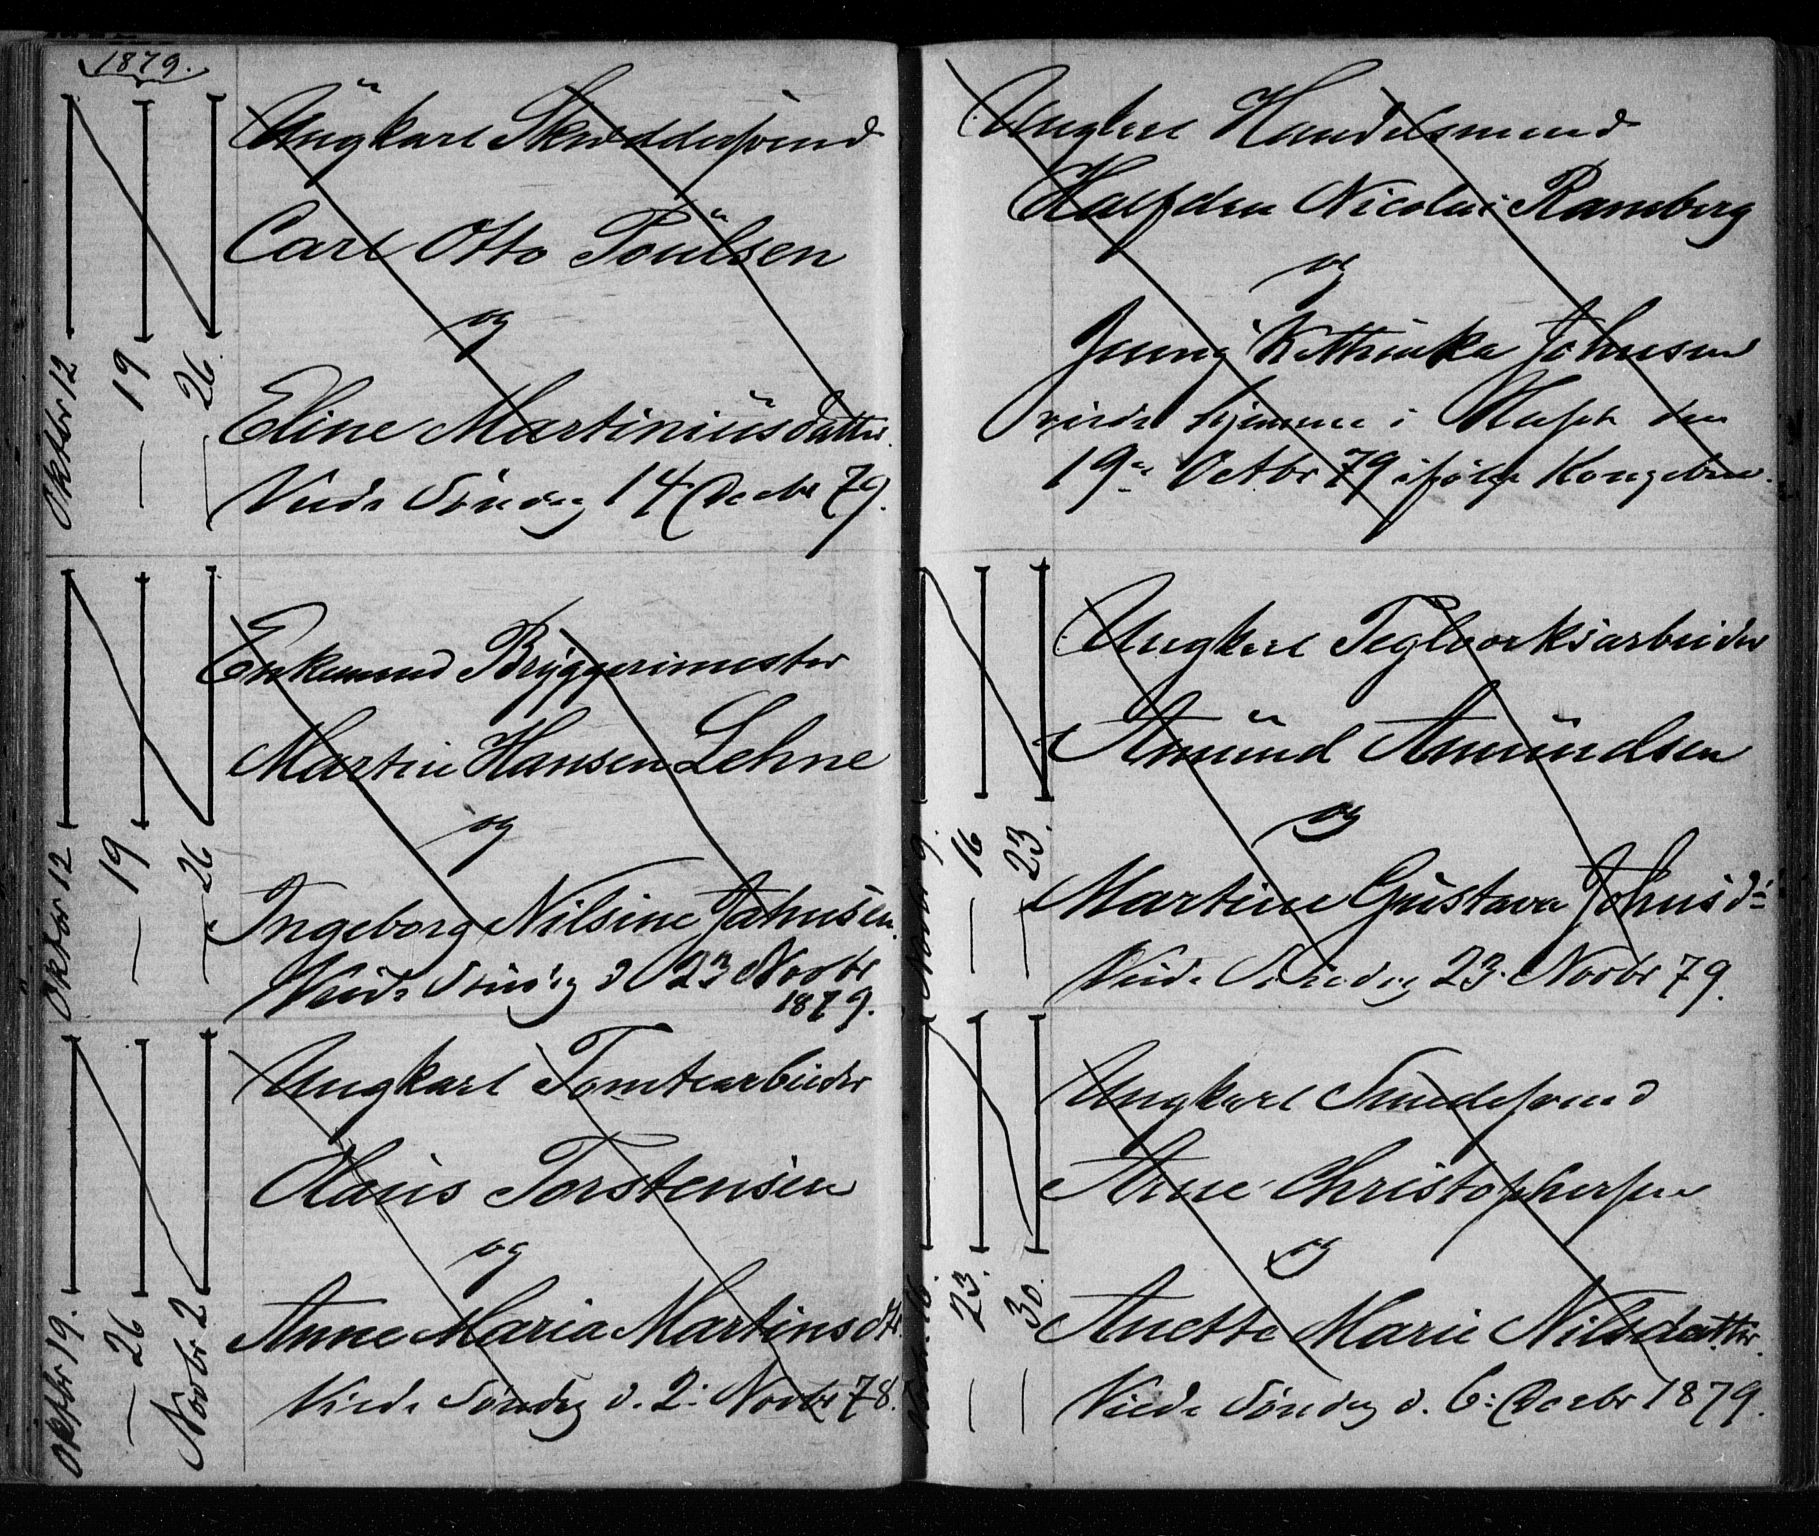 1879.
Oktbr 12 — 19 — 26.
Ungkarl Skræddersvend
Carl Otto Poulsen
og
Eline Martiniusdatter.
Viede Søndag 14 Decbr 79.
Oktbr 12 — 19 — 26
Enkemand Bryggerimester
Martin Hansen Lehne
og
Ingeborg Nilsine Johnsen.
Viede Søndag d 23 Novbr
1879.
Oktbr 19. — 26 Novbr 2
Ungkarl Tomtearbeider
Olaus Torstensen
og
Anne Maria Martinsdtr.
Viede Søndag d. 2: Novbr 78.
Ungkarl Handelsmand
Halfdan Nicolai Ramberg
og
Johnsen
viede hjemme i Huset den
19de Octbr 79 ifølge Kongebrev.
Novbr 9. — 16 — 23.
Ungkarl Teglverksarbeider
Amund Amundsen
og
Martine Gustava Johnsd:
Viede Søndag 23. Novbr 79.
16. — 23. — 30.
Ungkarl Smedesvend
Arne Christophersen
og
Anette Marie Nilsdatter.
Viede Søndag d. 6: Decbr 1879.